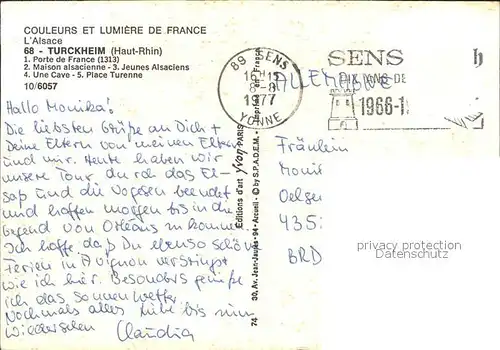 COULEURS ET LUMIÈRE DE FRANCE
L'Alsace
68 - TURCKHEIM (Haut-Rhin)
1. Porte de France (1313)
2. Maison alsacienne - 3. Jeunes Alsaciens
4. Une Cave - 5. Place Turenne
10/6057
Hallo Monika!
Die liebsten Grüße an Dich +
Deine Eltern von meinen Eltern
und mir. Heute haben wir
unsere Tour durch das El-
saß und die Vogesen beendet
und hoffen morgen bis in die
Gegend von Orléans zu kommen.
Ich hoffe daß Du ebenso schöne
Ferien in Avignon verbringst
wie ich hier. Besonders genieße
ich das Sonnenwetter.
Nochmals alles Liebe bis zum
Wiedersehen Claudia
Editions d'art Yvon PARIS
74 30, Av. Jean-Jaurès - 94 - Arcueil - © by S.P.A.D.E.M.
89 SENS
16H15
8-8
1977
YONNE
SENS
DIX ANS DE
1966-1
ALLEMAGNE
Fräulein
Monik
Oelser
435
BRD
privacy protection
Datenschutz